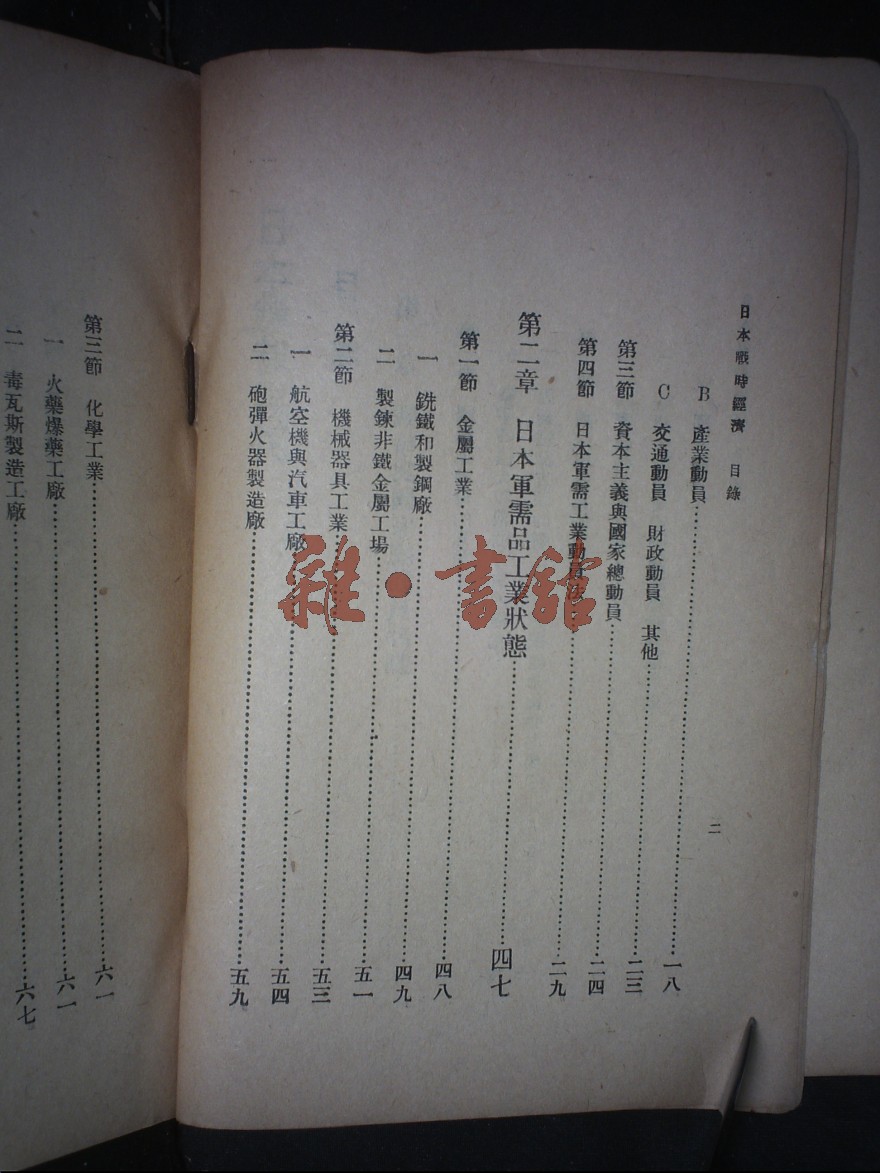 日本戰時經濟 目錄
二
B 產業動員……一八
C 交通動員 財政動員 其他……二三
第三節 資本主義與國家總動員……二四
第四節 日本軍需工業動員法……二九
第二章 日本軍需品工業狀態……四七
第一節 金屬工業……四八
一 銑鐵和製鋼廠……四九
二 製鍊非鐵金屬工場……五一
第二節 機械器具工業……五三
一 航空機與汽車工廠……五四
二 砲彈火器製造廠……五九
第三節 化學工業……六一
一 火藥爆藥工廠……六一
二 毒瓦斯製造工廠……六七
雜·書館